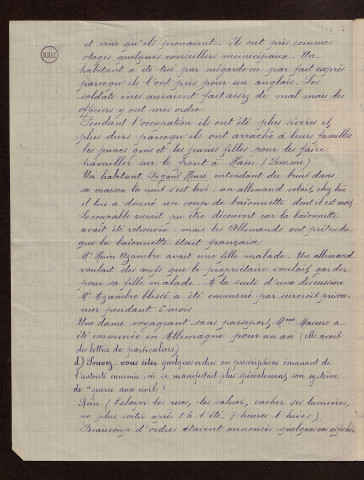 B.D.I.C
et vins qu'ils prenaient. Ils ont pris comme
otages quelques conseillers municipaux. Un
habitant a été tué par mégarde ou par fait exprès
parcequ'il l'ont pris pour un anglais. Les
soldats ivres auraient fait assez de mal mais les
officiers y ont mis ordre.
Pendant l'occupation ils ont été plus sévères et
plus durs parcequ'ils ont arraché à leurs familles
les jeunes gens et les jeunes filles pour les faire
travailler sur le front à Ham (Somme)
Un habitant Henri entendant du bruit dans
sa maison la nuit s'est levé : un allemand volait chez lui
il lui a donné un coup de baïonnette dont il est mort.
Le coupable aurait pu être découvert car la baïonnette
avait été retrouvée : mais les Allemands ont prétendu
que la baïonnette était française
Mr Henri Azambre avait une fille malade. Un allemand
voulait des œufs que le propriétaire voulait garder
pour sa fille malade. A la suite d'une discussion
Mr Azambre blessé a été emmené par surcroît prison
nier pendant 6 mois
Une dame voyageant sans passeport, Mme a
été emmenée en Allemagne pour un an (elle avait
des lettres de particuliers)
d) Pouvez-vous citer quelques ordres ou prescriptions émanant de
l'autorité ennemie, où se manifestait plus spécialement son système
de "guerre aux civils"?
Rien (balayer les rues, les cacher ses lumières,
ne plus sortir après 7 h l'été, 7 heures l'hiver).
Beaucoup d'ordres étaient annoncés quelques uns affichés